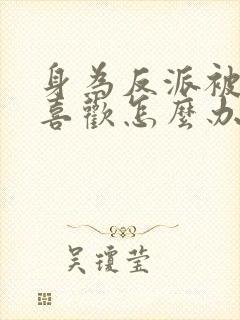 身為反派被
喜歡怎麼办
吴瓊莹